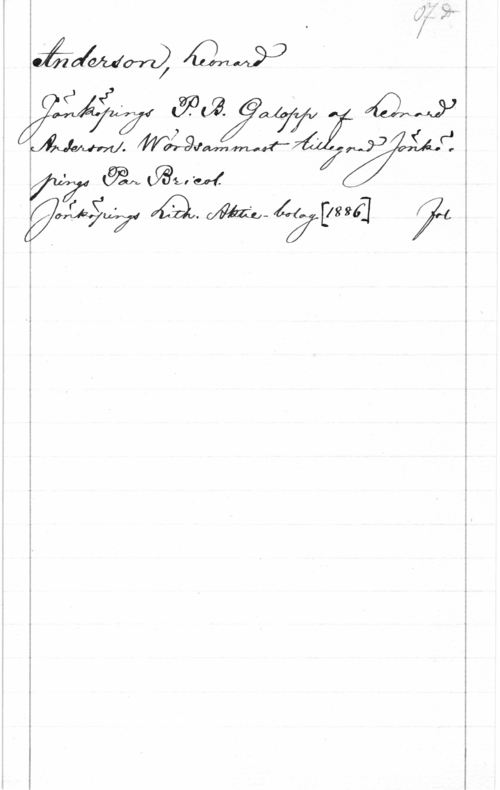 Anderson, Leonard
Jönköpings P. B. Galopp af Leonard
Anderson. Wördsammast tillegnad Jönkö-
pings Par Bricol.
Jönköpings Lith. Aktie-bolag [1886] fol